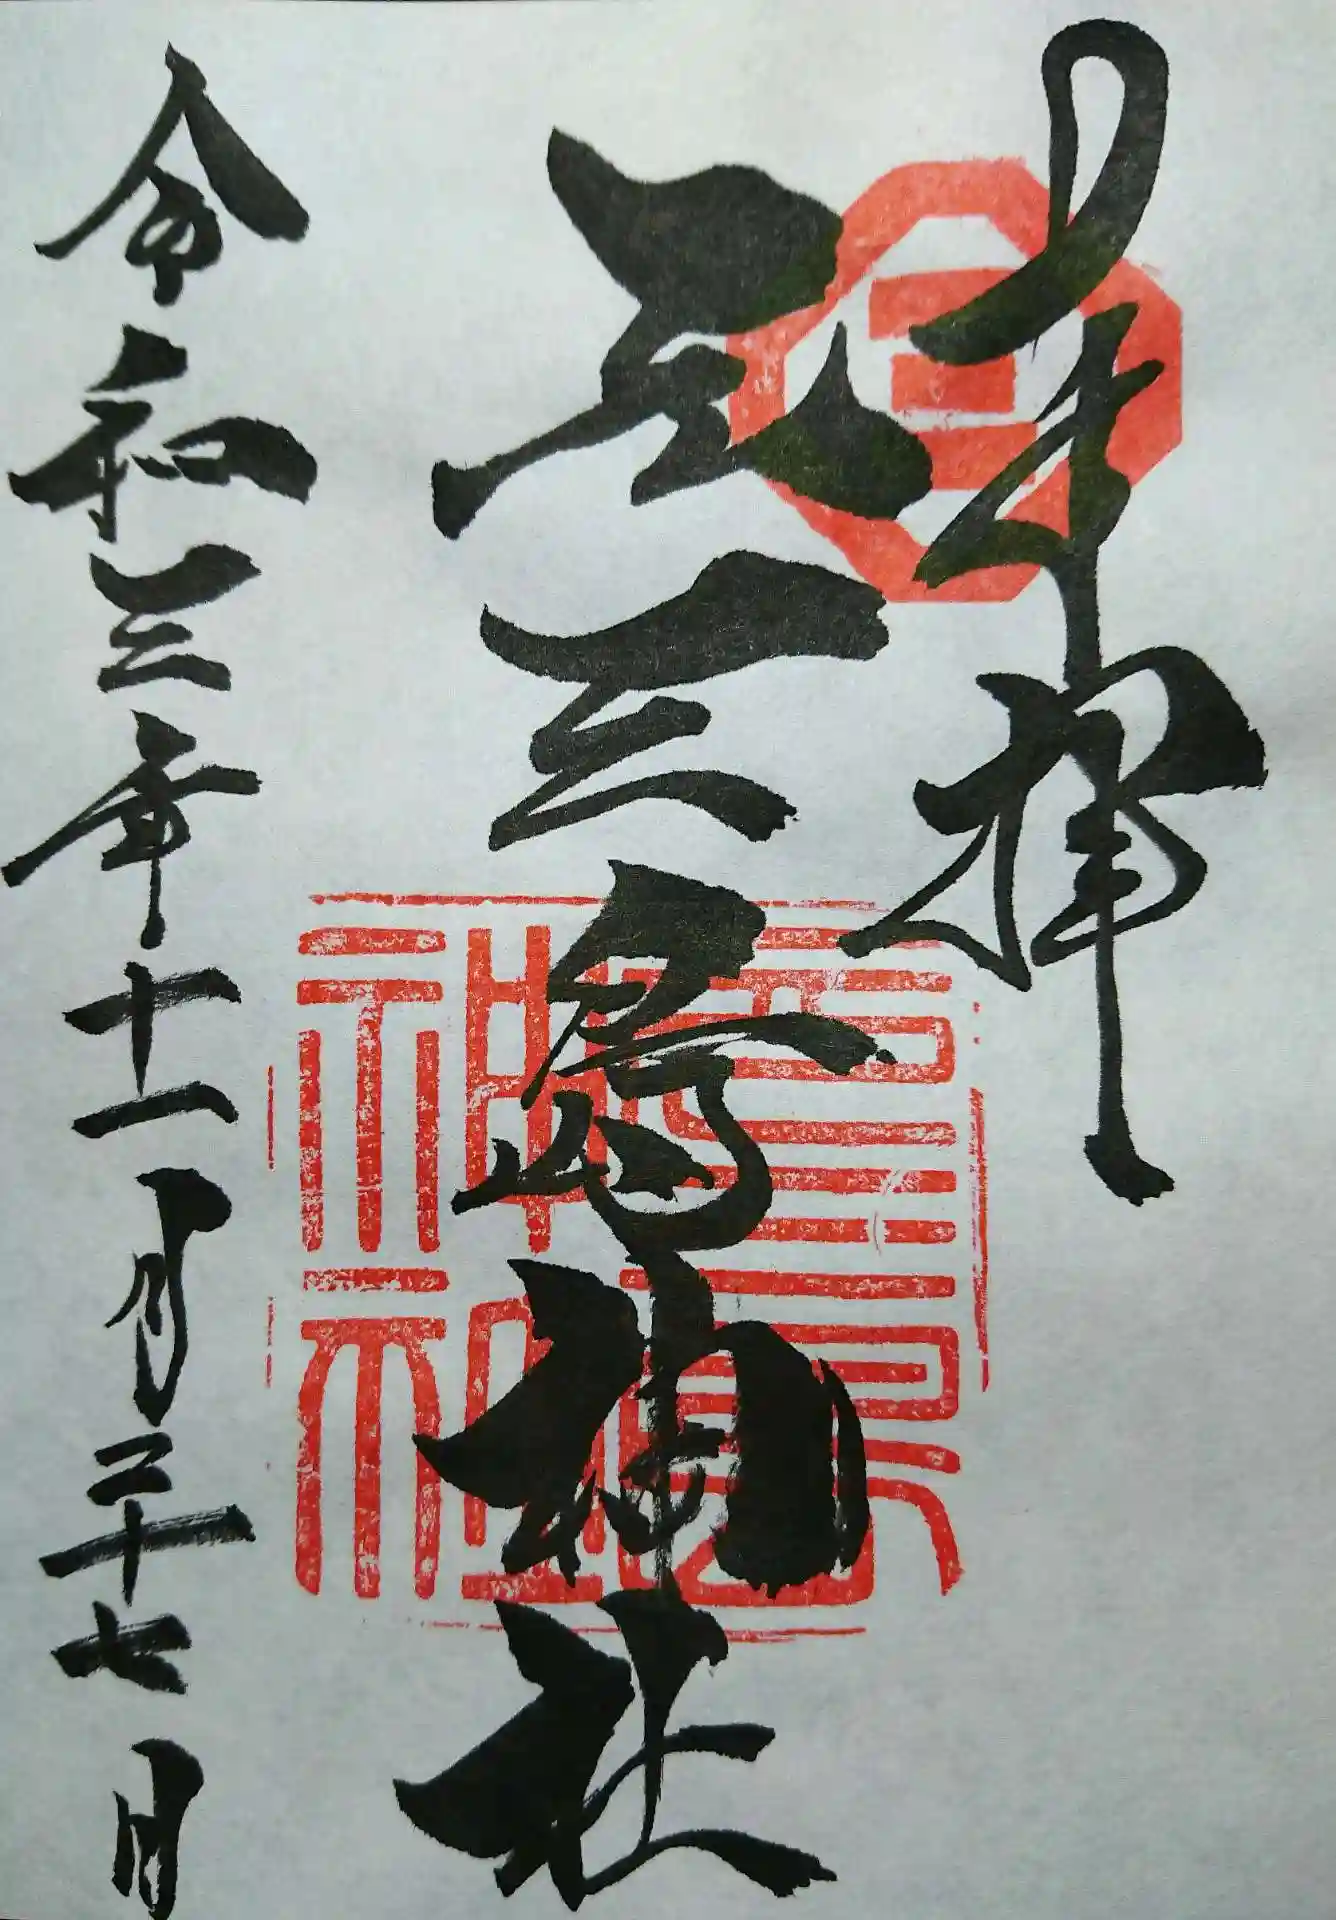 奉拝
元三島神社
令和三年十一月二十七日
元三島
神社